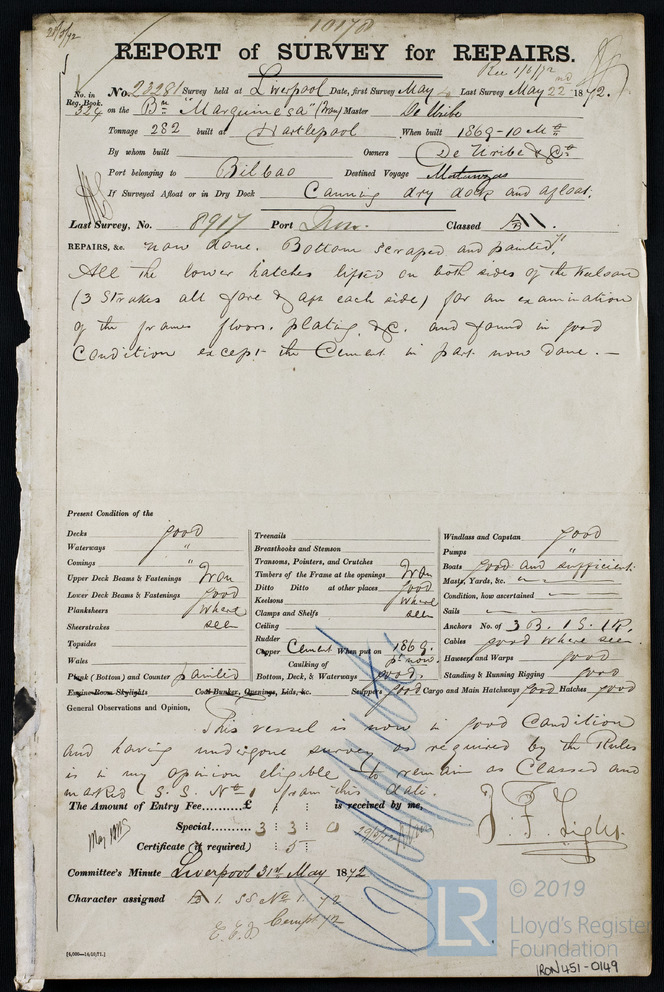 10170
REPORT of SURVEY for REPAIRS.
Rec 1/6/72
No. in Reg. Book. 324
No. 23281 Survey held at Liverpool Date, first Survey May 4 Last Survey May 22nd 1872.
on the Bn "Marquinesa" (Iron) Master De Uribe
Tonnage 282 built at Hartlepool When built 1869-10 Mth
By whom built Owners De Uribe & Co
Port belonging to Bilbao Destined Voyage Matanzas
If Surveyed Afloat or in Dry Dock Canning dry dock and afloat.
Last Survey, No. 8917 Port Classed A1.
REPAIRS, &c. now done. Bottom scraped and painted.
All the lower hatches lifted on both sides of the Keelson
(3 Strakes all fore & aft each side) for an examination
of the frames floors, plating, &c. and found in good
Condition except the Cement in part now done. —
Present Condition of the
Decks good
Waterways "
Comings "
Upper Deck Beams & Fastenings Iron
Lower Deck Beams & Fastenings good
Planksheers where
Sheerstrakes seen
Topsides
Wales
Plank (Bottom) and Counter painted
Engine Room Skylights Coal Bunker, Openings, Lids, &c.
Treenails
Breasthooks and Stemson
Transoms, Pointers, and Crutches
Timbers of the Frame at the openings Iron
Ditto Ditto at other places good
Keelsons where
Clamps and Shelfs seen
Ceiling
Rudder
Copper Cement When put on 1869.
Caulking of pt now.
Bottom, Deck, & Waterways good.
Scuppers good Cargo and Main Hatchways good Hatches good
Windlass and Capstan good
Pumps "
Boats good and sufficient.
Masts, Yards, &c.
Condition, how ascertained
Sails
Anchors No. of 3 B. 1 S. 1 K.
Cables good where seen.
Hawsers and Warps good
Standing & Running Rigging good
General Observations and Opinion,
This vessel is now in good Condition
and having undergone survey as required by the Rules
is in my opinion eligible to remain as Classed and
marked S. S. No 1 from this date.
The Amount of Entry Fee......... £ : : is received by me,
Special.......... 3 : 3 : 0
Certificate (if required) : 5 :
J. F. Light.
Committee's Minute Liverpool 31st May 1872
Character assigned A 1. SS No 1. 72
[6,000—14/10/71.]
LR
© 2019
Lloyd's Register
Foundation
IRON451-0149